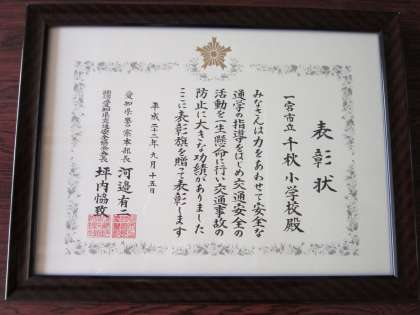 表彰状
一宮市立千秋小学校殿
みなさんは力をあわせて安全な
通学の指導をはじめ交通安全の
活動を一生懸命に行い交通事故の
防止に大きな功績がありました
ここに表彰旗を贈って表彰します
平成二十二年九月十五日
愛知県警察本部長 河邉有二
坪内恊致